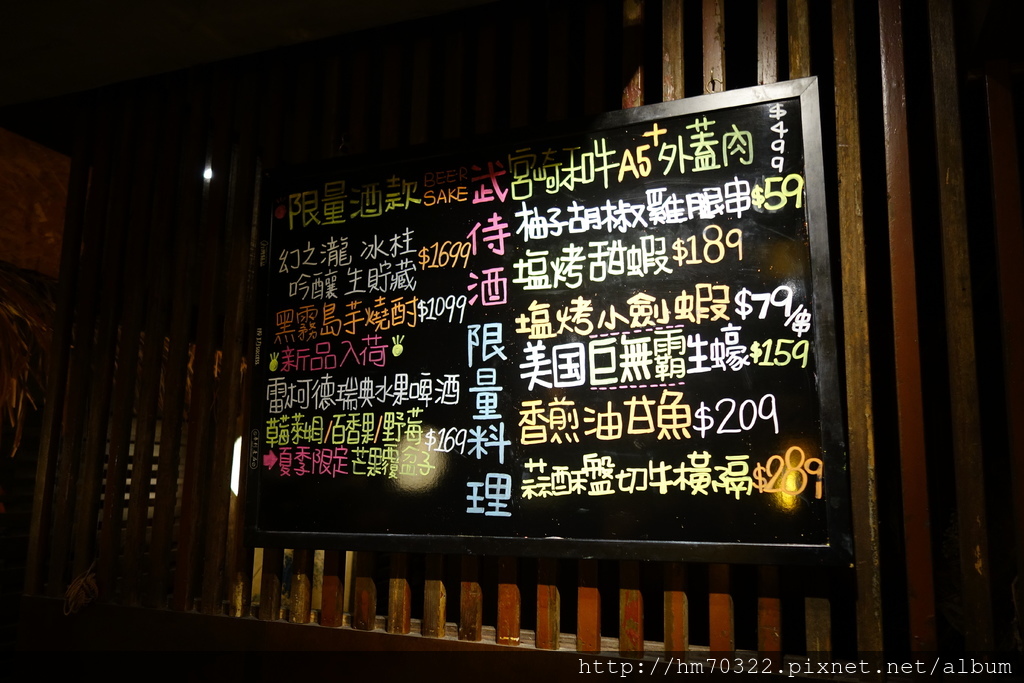 限量酒款 BEER SAKE
幻之瀧 冰柱
吟釀 生貯藏 $1699
黑霧島芋燒酎 $1099
新品入荷
雷柯德瑞典水果啤酒
草莓萊姆/百香果/野莓 $169
夏季限定 芒果覆盆子
武侍酒 限量料理
宮崎和牛A5+外蓋肉 $499
柚子胡椒雞腿串 $59
塩烤甜蝦 $189
塩烤小劍蝦 $79/串
美国巨無霸生蠔 $159
香煎油甘魚 $209
蒜酥盤切牛橫膈 $289
http://hm70322.pixnet.net/album